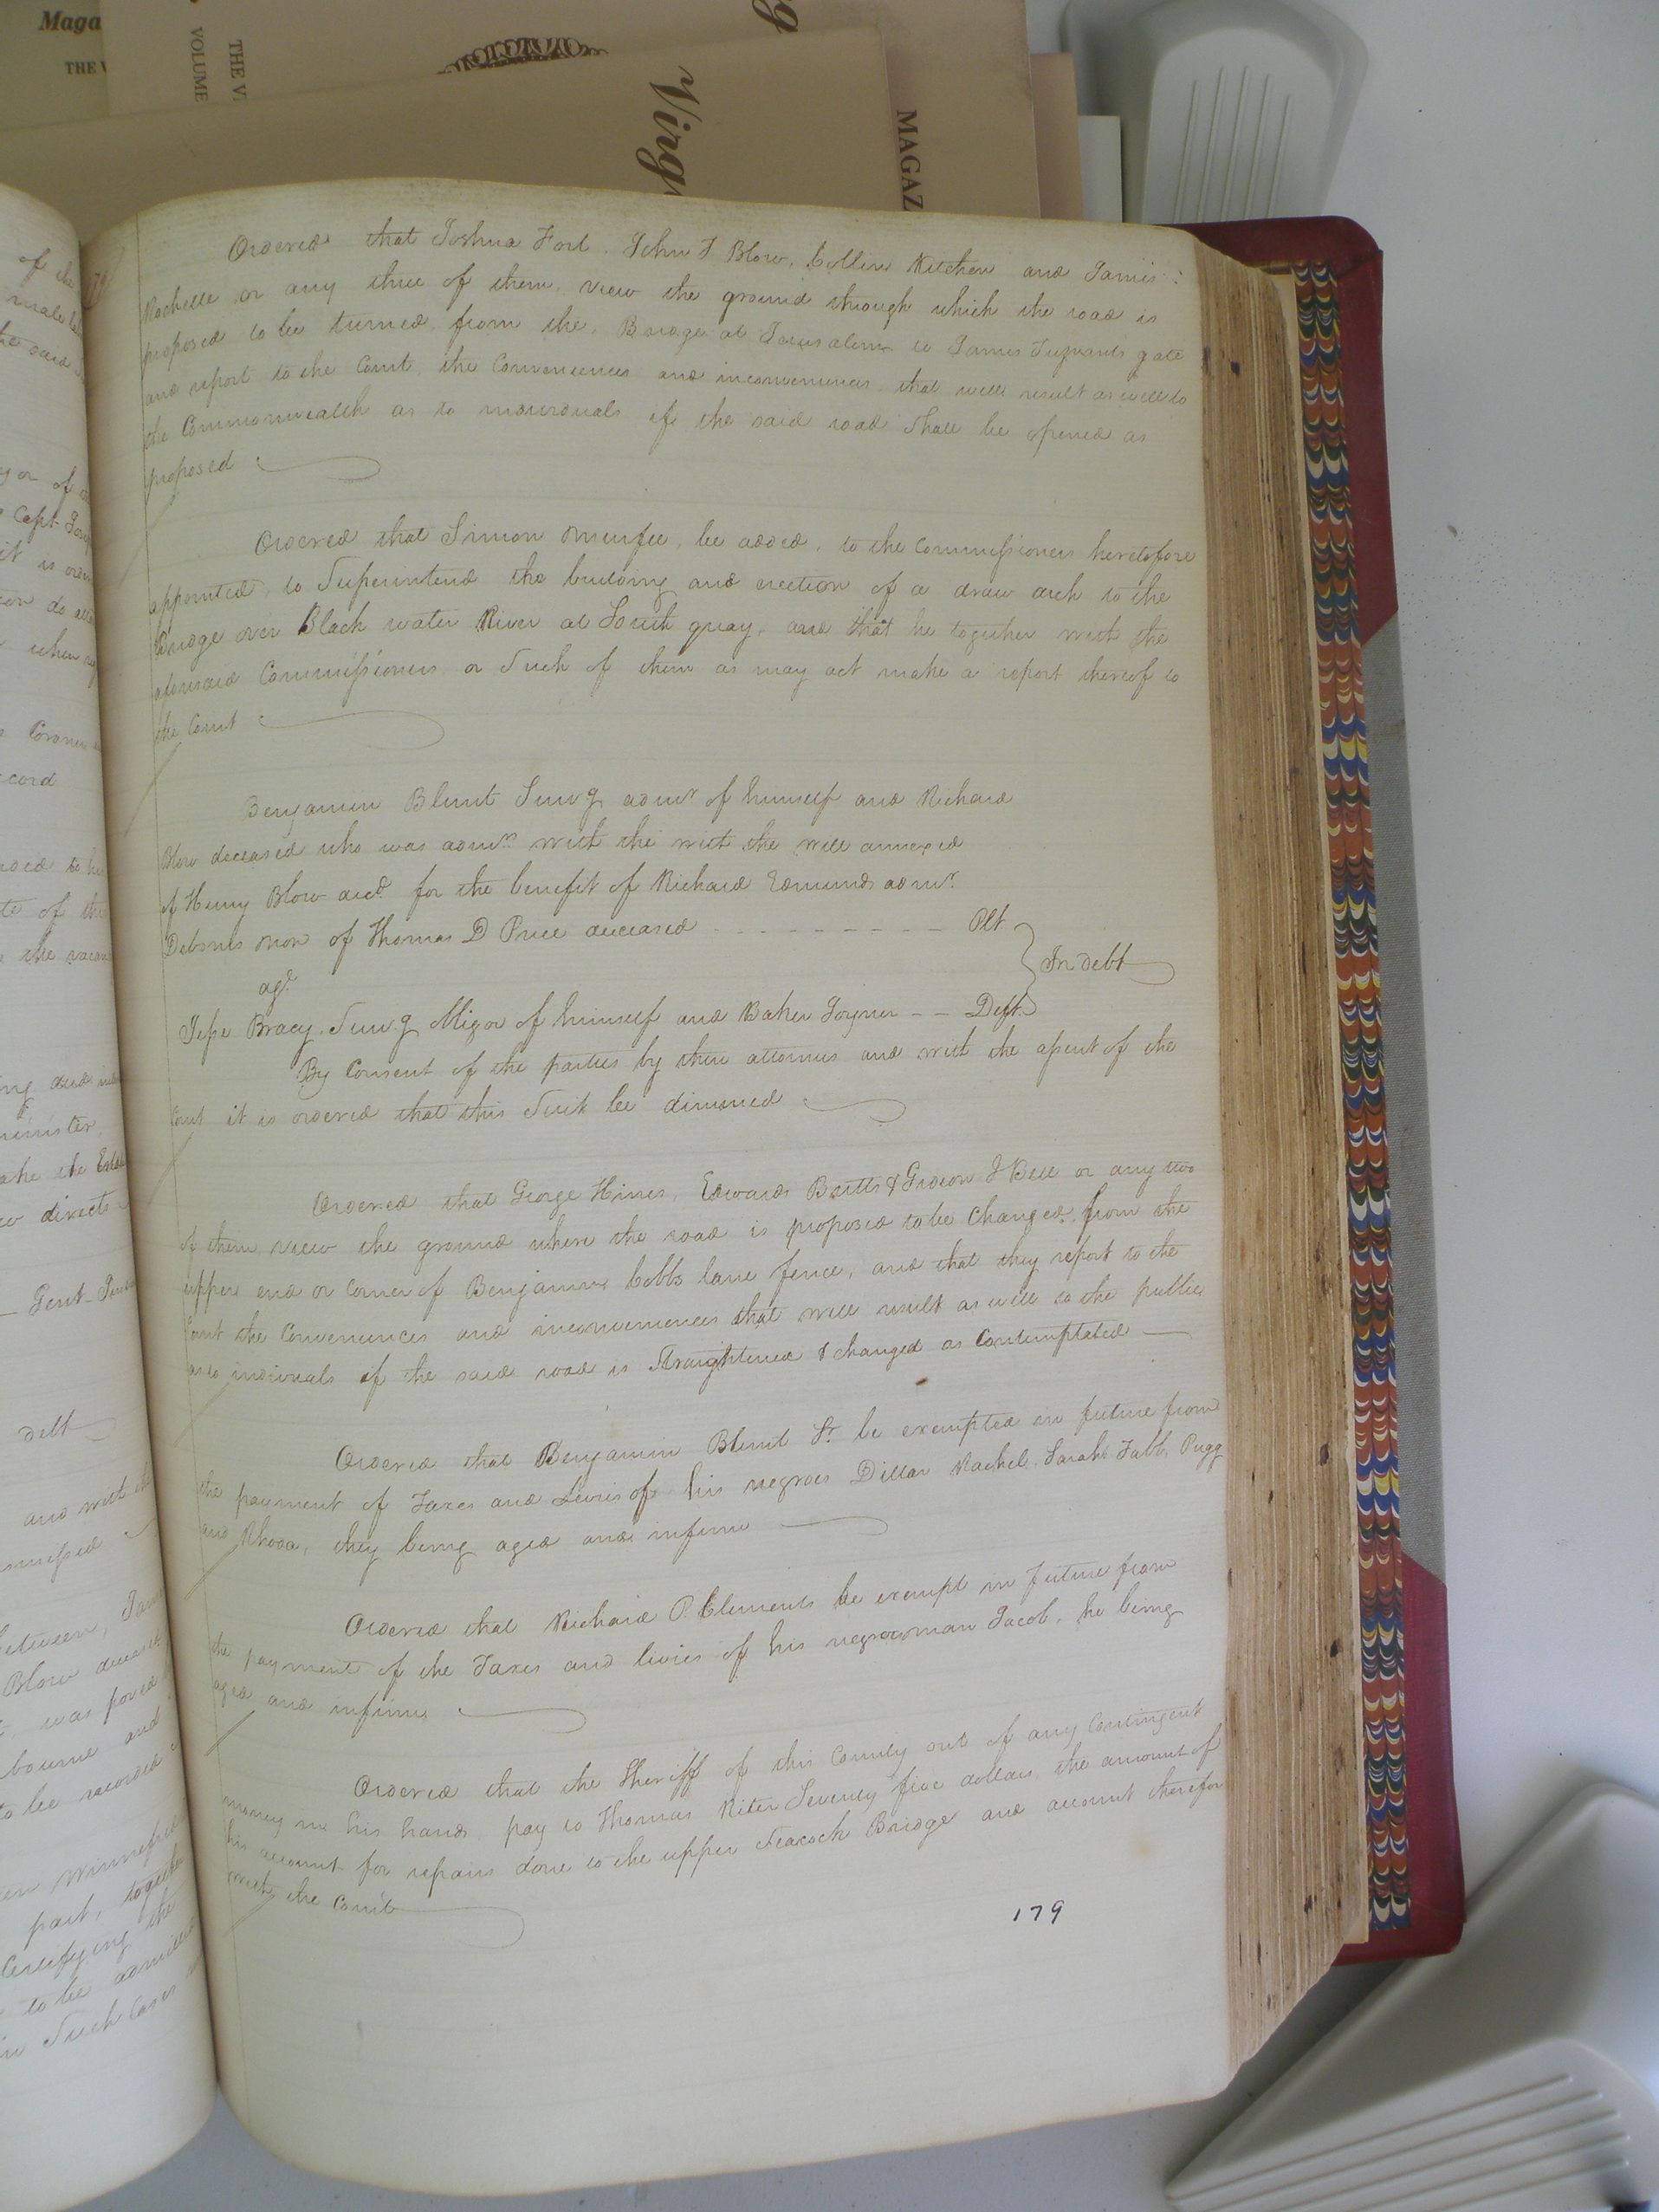 Maga
THE V
VOLUME
THE V
Virg
MAGAZ
of the
male
the said
gor of
Capt
it is
do
when
Coroner
cord
to
te of the
the
ing and
minister,
ake the
directs
Gent
debt
and with
between,
Blow
was proved
bourne and
to be recorded
Winnefred
part, together
Certifying the
to be admitted
in Such Cases
179
Ordered that Joshua Fort. John T Blow, Collin Kitchen and James :
Rochelle or any three of them, view the ground through which the road is
proposed to be turned from the Bridge at Jerusalem to James Trezvants gate
and report to the Court, the Conveniences and inconveniences, that will result as well to
the Commonwealth as to individuals if the said road Shall be opened as
proposed
Ordered that Simon Murfee, be added, to the Commissioners heretofore
appointed, to Superintend the building and erection of a draw arch to the
Bridge over Black water River at South quay, and that he together with the
aforesaid Commissioners or Such of them as may act make a report thereof to
the Court
Benjamin Blunt Surv.g admr. of himself and Richard
Blow deceased who was admr. with the with the will annexed
of Henry Blow decd. for the benefit of Richard Edmunds admr.
Debonis non of Thomas D Price deceased - - - - - - - - - Plt
agt
In debt
Jesse Bracy Surv.g Obligor of himself and Baker Joyner - - Deft.
By Consent of the parties by their attornies and with the assent of the
Court it is ordered that this Suit be dismissed
Ordered that George Hines, Edwards Butts & Gideon J Bell or any two
of them view the ground where the road is proposed to be Changed, from the
upper end or Corner of Benjamin Cobbs lane fence, and that they report to the
Court the Conveniences and inconveniences that will result as well to the public
as to indivuals if the said road is Straightened & changed as Contemplated
Ordered that Benjamin Blunt Sr. be exempted in future from
the payment of Taxes and Levies of his negroes Dillar Rachel, Sarah Tabb, Pegg
and Rhoda, they being aged and infirm
Ordered that Richard P. Clements be exempt in future from
the payment of the Taxes and livies of his negroman Jacob, he being
aged and infirm
Ordered that the Sheriff of this County out of any Contingent
money in his hands, pay to Thomas Kiter Seventy five dollars the amount of
his account for repairs done to the upper Seacock Bridge and account therefor
with the Court
179